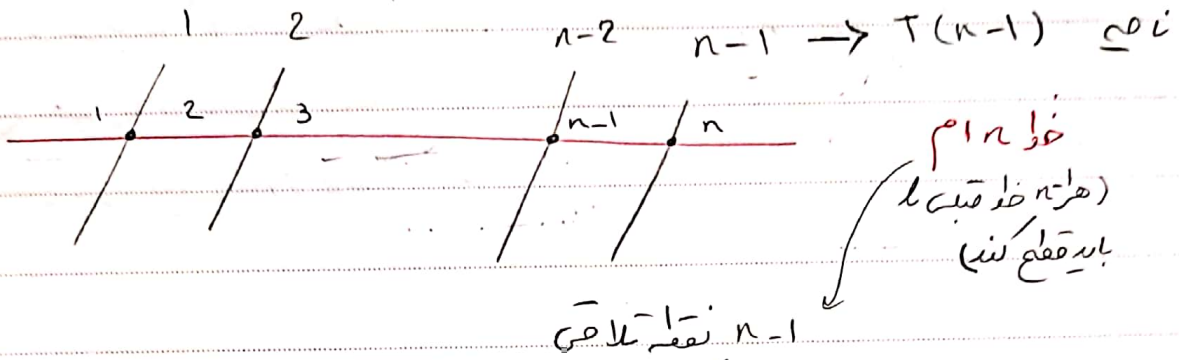 1 2 n-2 n-1 → T(n-1) ناحیه
1 2 3 n-1 n
خط n ام
(هر n-1 خط قبلی را
باید قطع کند)
n-1 نقطه تلاقی